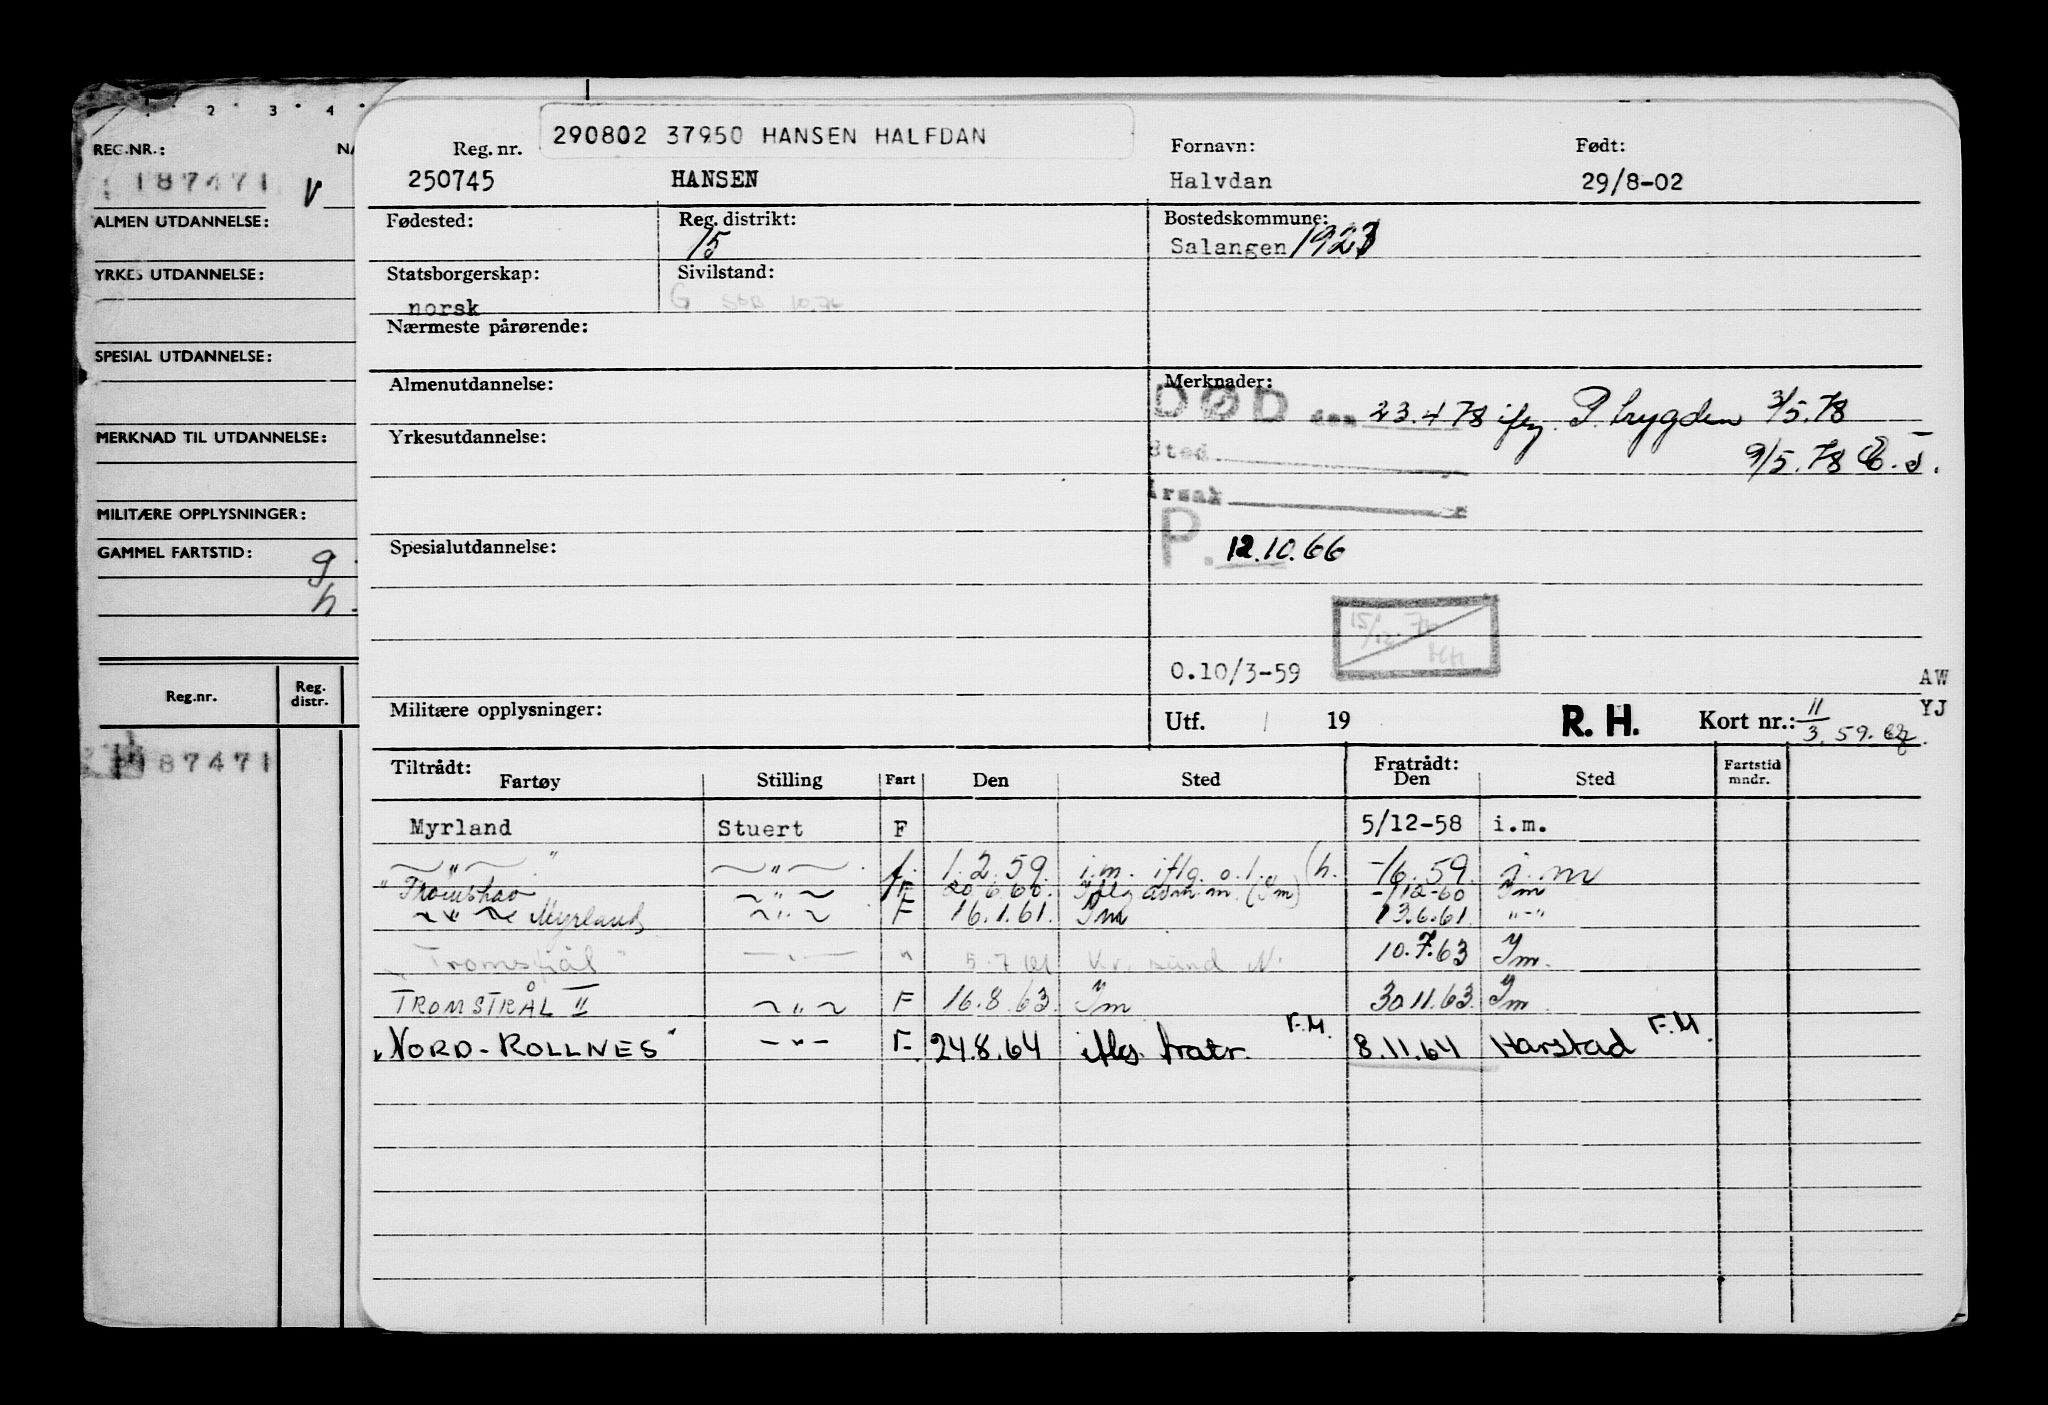 1 2 3 4
REG.NR.:
187471 V
ALMEN UTDANNELSE:
YRKES UTDANNELSE:
SPESIAL UTDANNELSE:
MERKNAD TIL UTDANNELSE:
MILITÆRE OPPLYSNINGER:
GAMMEL FARTSTID: g
h.
Reg.nr. Reg. distr.
187471
290802 37950 HANSEN HALFDAN
Reg. nr. Fornavn: Født:
250745 HANSEN Halvdan 29/8-02
Fødested: Reg. distrikt: Bostedskommune:
15 Salangen 1923
Statsborgerskap: Sivilstand:
norsk G
Nærmeste pårørende:
Almenutdannelse: Merknader:
DØD den 23.4 78 iflg. P.trygden 3/5.78
Yrkesutdannelse:
Sted 9/5.78
Årsak
Spesialutdannelse: P. 12.10.66
15/12.
0.10/3-59
AW
Militære opplysninger: Utf. / 19 R. H. Kort nr.: 11/3.59.
YJ
Tiltrådt: Fratrådt:
Fartøy Stilling Fart Den Sted Den Sted Fartstid mndr.
Myrland Stuert F 5/12-58 i.m.
" " " f. 1.2.59. i.m. iflg. o.l. (h. -/6.59. i.m
"Tromshav " F 20.6.60. Iflg (Im) -/12-60 Im
" Myrland " F 16.1.61. Im 13.6.61. "-"
" " " 5.7.61 Kr.sund N. 10.7.63 Im.
TROMSTRÅL II " F 16.8.63. Im 30.11.63. Im.
"NORD-ROLLNES" -"- F. 24.8.64 iflg. fratr. F.M. 8.11.64 Harstad F.M.